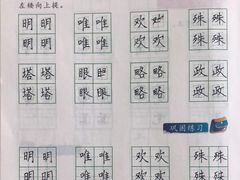 左矮向上提。
明 明 唯 唯 欢 欢 殊 殊
明 明 唯 唯 欢 欢 殊 殊
塔 塔 眼 眼 略 略 政 政
塔 塔 眼 眼 略 略 政 政
巩固练习
明 明 唯 唯 欢 欢 殊 殊
明 明 唯 唯 欢 欢 殊 殊